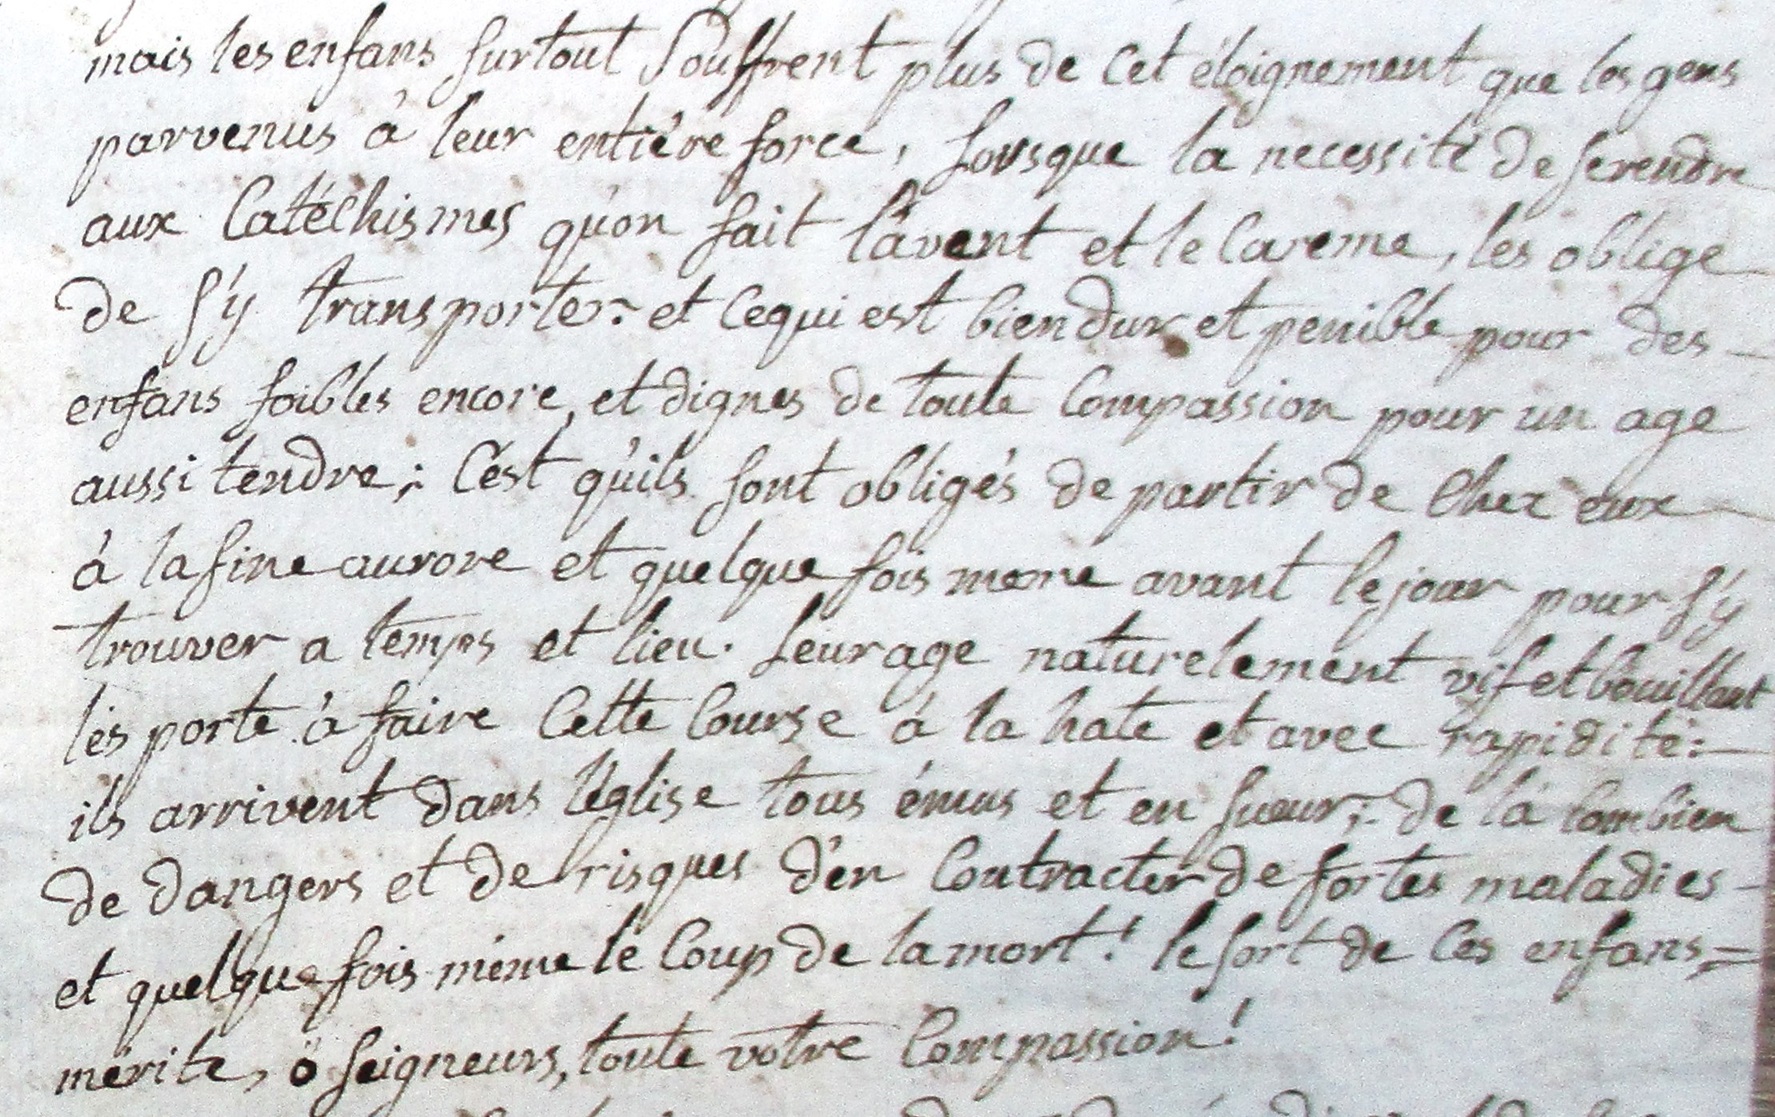 mais les enfans surtout souffrent plus de cet éloignement que les gens
parvenus à leur entière force, lorsque la necessité de se rendre
aux Catéchismes qu'on fait l'avent et le Careme, les oblige
de s'y transporter: et ce qui est bien dur et penible pour des
enfans foibles encore, et dignes de toute Compassion pour un age
aussi tendre; C'est qu'ils sont obligés de partir de Chez eux
à la fine aurore et quelque fois meme avant le jour pour s'y
trouver a temps et lieu. leur age naturelement vif et bouillant
les porte à faire Cette Course à la hate et avec rapidité:
ils arrivent dans l'église tous émus et en sueur; de là Combien
de dangers et de risques d'en Contracter de fortes maladies
et quelque fois méme le Coup de la mort! le sort de Ces enfans,
mérite, ô seigneurs, toute votre Compassion!